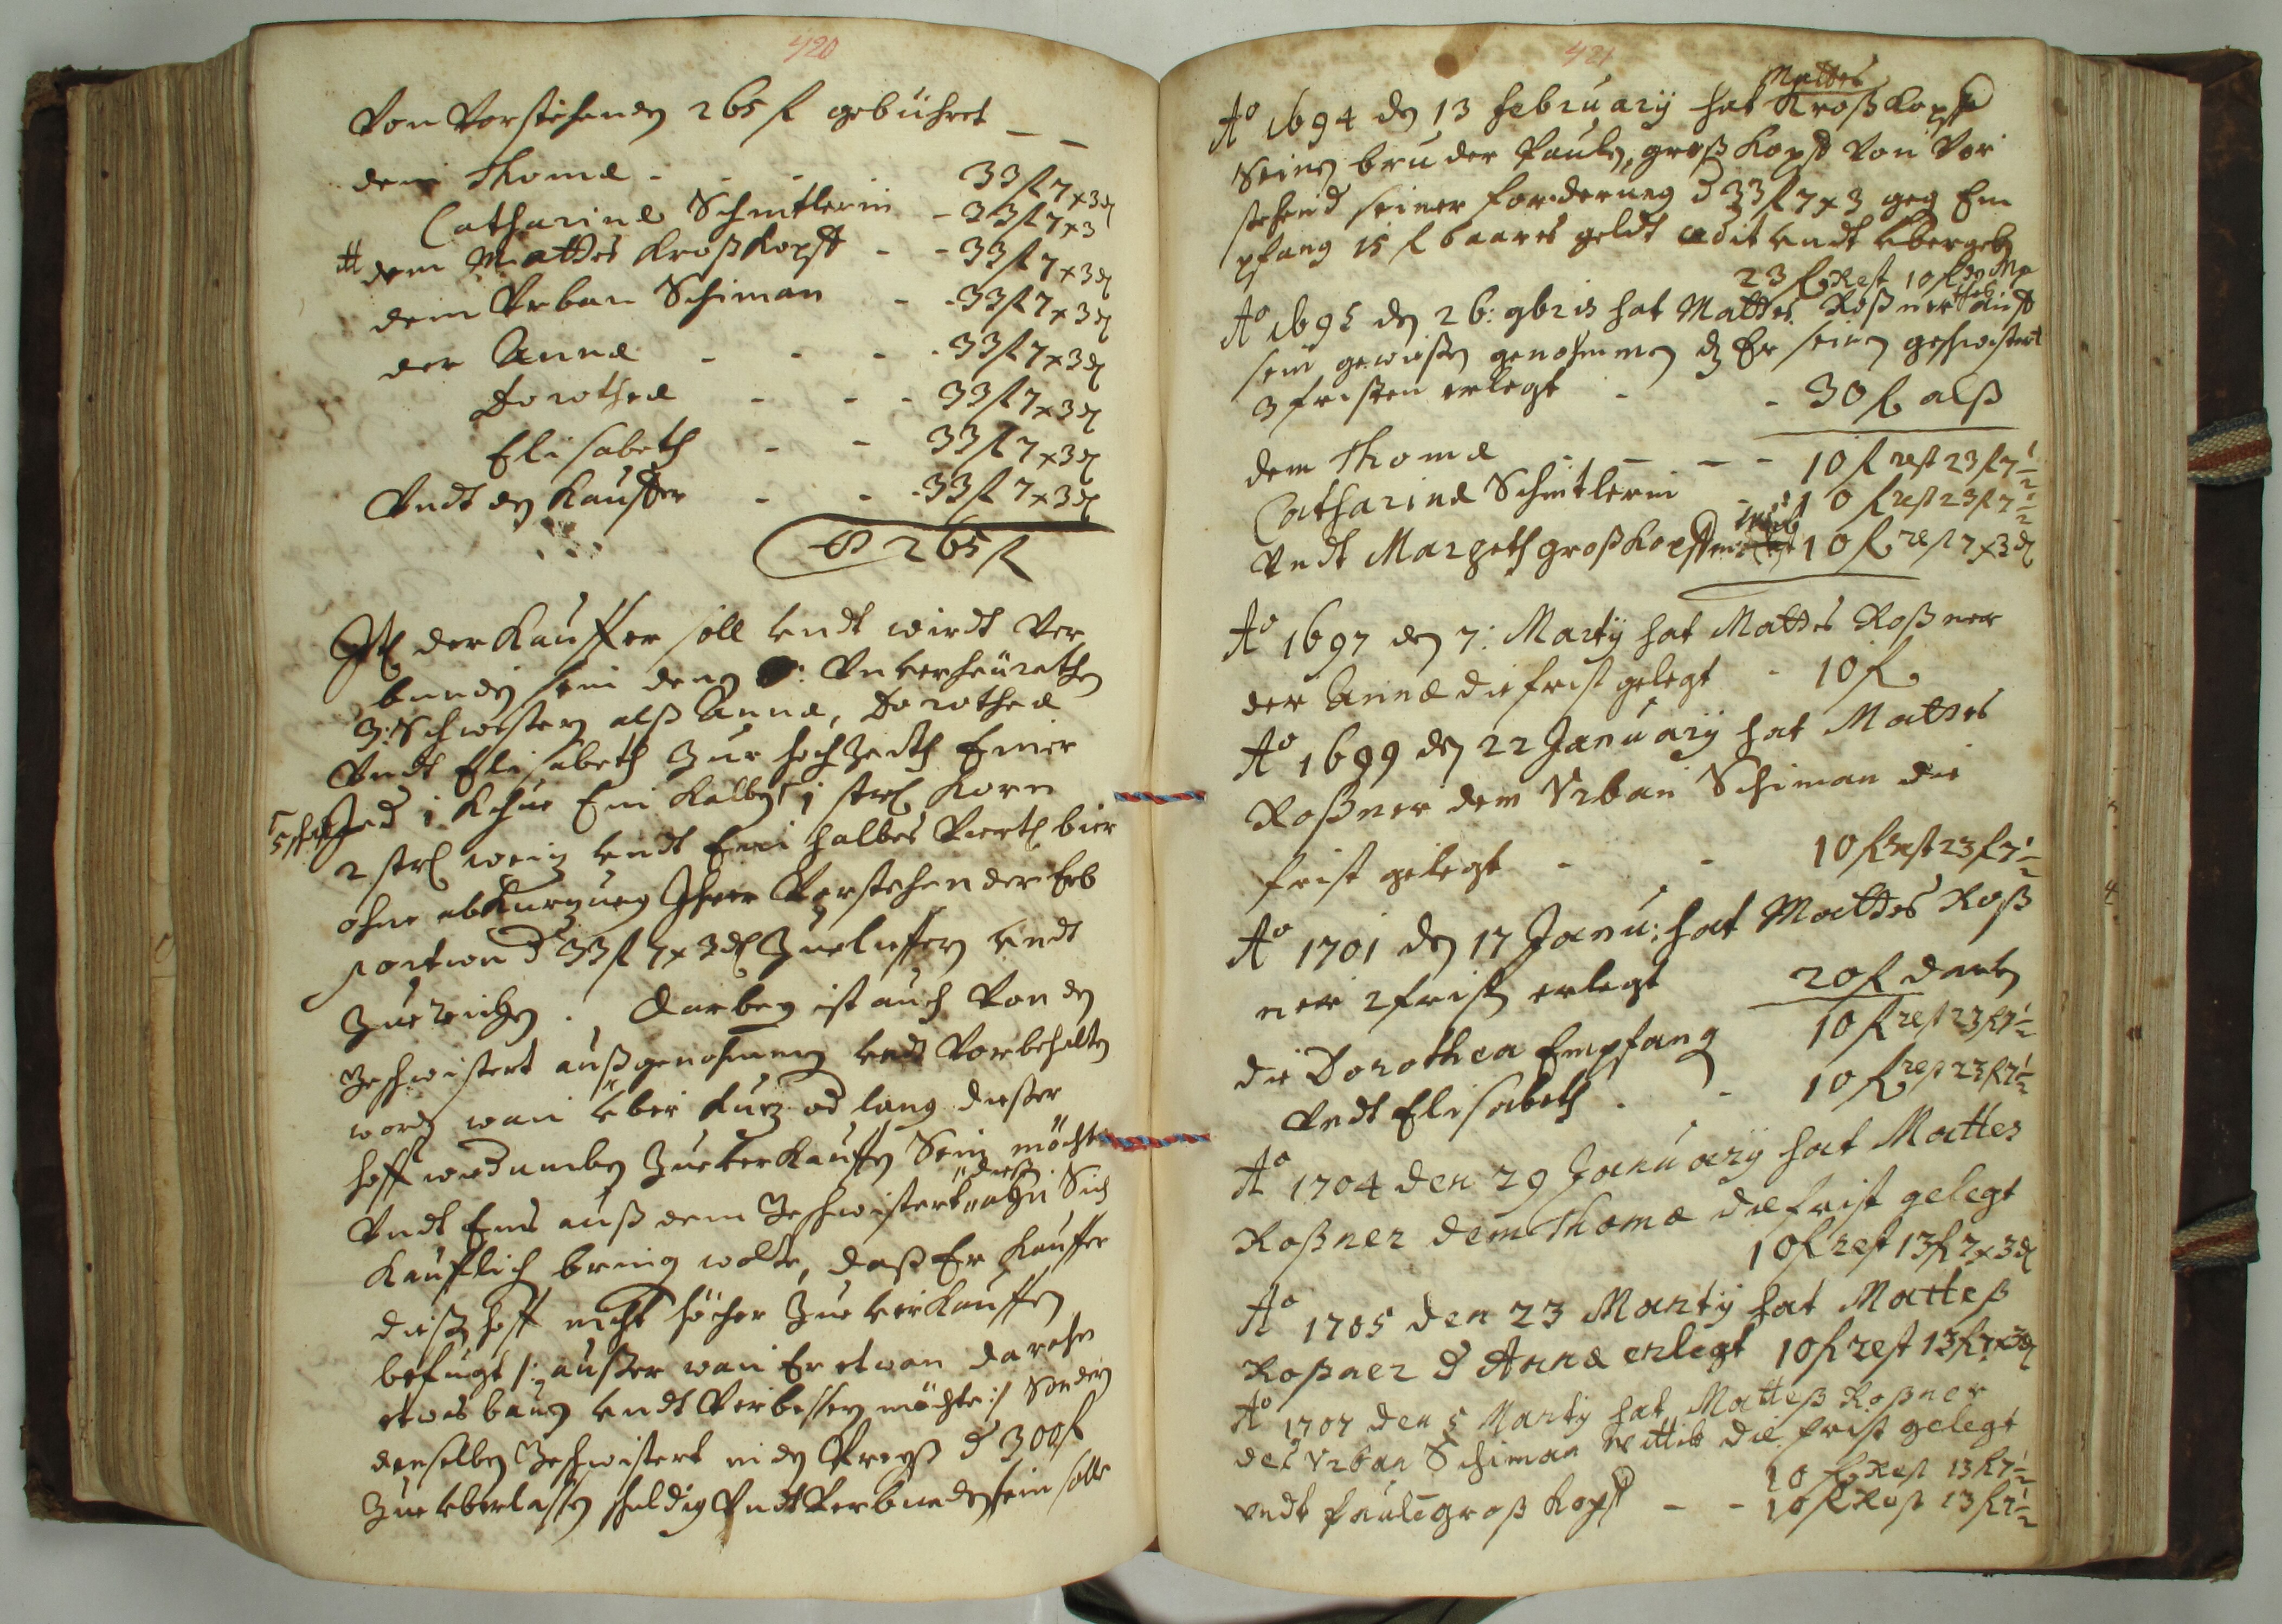 420
Von Vorstehenden 265 f gebühret
dem Thoma - - - 33 f 7 x 3 d
Catharina Schmitlerin - 33 f 7 x 3
dem Mattes Kroßkopff - - 33 f 7 x 3 d
dem Urban Schiman - - 33 f 7 x 3 d
der Anna - - - 33 f 7 x 3 d
Dorothea - - - 33 f 7 x 3 d
Elisabeth - - 33 f 7 x 3 d
Undt den Kauffer - - 33 f 7 x 3 d
265 f
der Kauffer soll undt wirdt Ver
bunden sein denen Unverheürathen
3: Schwestern alß Anna, Dorothea
Undt Elisabeth Zur hochZeith Einer
Jed 1 Kuhe Ein Kalben 1 strl Korn
2 strl weiz undt Ein halbes Viertl bier
ohne abkurzung Ihrer Vorstehender Erb
portion d 33 f 7 x 3 d Zueliffern undt
Zureichen. Darbey ist auch Von den
Geschwistert außgenohmen undt Vorbehalten
worden wan über kurz od lang dießer
hoff widumben Zueverkauffen Sein möchte
Undt Eins auß dem Geschwistert an Sich
dießen
Kaufflich bringen wolte, daß Er Kauffer
dießen hoff nicht höcher Zue verkauffen
befugt /: außer wan Er etwan darahn
etwas bauen undt Verbessern möchte :/ sondern
denselben Geschwistert in den Preyß d 300 f
Zue überlassen schuldig Undt Verbunden sein solle
421
Mattes
Ao 1694 den 13 februarij hat Kroßkopff
Seinen bruder Paulen großkopff Von Vor
stehend seiner forderung d 33 f 7 x 3 geg Em
pfang 15 f baares geldt undt übergeben
23 f Rest 10 f
Ao 1695 den 26: 9bris hat Mattes Roßner auff
sein gewißen genohmmen dz Er seinen geschwistert
3 fristen erlegt - - 30 f alß
dem Thoma - - - 10 f rest 23 f 7 ½
Catharina Schmitlerin - 10 f rest 23 f 7 ½
Undt Margeth großkopffin 10 f rest 7 x 3 d
Ao 1697 den 7: Martij hat Mattes Roßner
der Anna die frist gelegt - 10 f
Ao 1699 den 22 Januarij hat Mattes
Roßner dem Urban Schiman die
frist gelegt - - 10 f rest 23 f 7 ½
Ao 1701 den 17 Janu: hat Mattes Roß
ner 2 frist erlegt 20 f
die Dorothea Empfang 10 f rest 23 f 7 ½
Undt Elisabeth - - 10 f rest 23 f 7 ½
Ao 1704 den 29 Januarij hat Mattes
Roßner dem Thoma die frist gelegt
10 f rest 13 f 7 x 3 d
Ao 1705 den 23 Martij hat Matteß
Roßner d Anna erlegt 10 f rest 13 f 7 x 3 d
Ao 1707 den 5 Martij hat Matteß Roßner
des Urban Schiman Wittib die frist gelegt
10 f Rest 13 f 7 ½
undt Paule groß Kopff - - 10 f Rest 13 f 7 ½